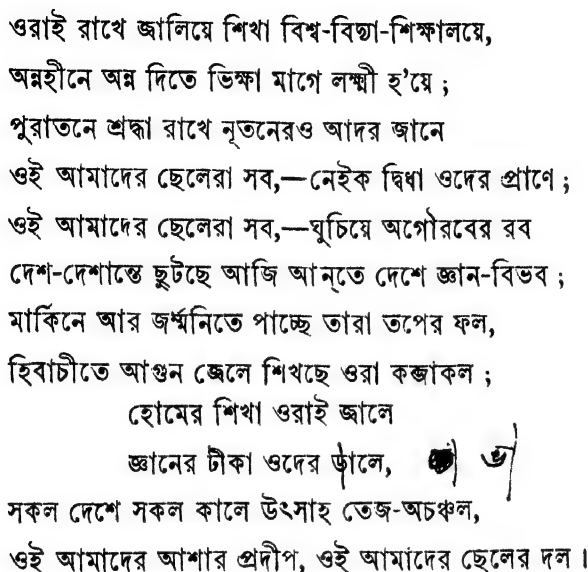 ওরাই রাখে জ্বালিয়ে শিখা বিশ্ব-বিদ্যা-শিক্ষালয়ে,
অন্নহীনে অন্ন দিতে ভিক্ষা মাগে লক্ষ্মী হ'য়ে ;
পুরাতনে শ্রদ্ধা রাখে নূতনেরও আদর জানে
ওই আমাদের ছেলেরা সব,—নেইক দ্বিধা ওদের প্রাণে ;
ওই আমাদের ছেলেরা সব,—ঘুচিয়ে অগৌরবের রব
দেশ-দেশান্তে ছুটছে আজি আন্‌তে দেশে জ্ঞান-বিভব ;
মার্কিনে আর জর্ম্মনিতে পাচ্ছে তারা তপের ফল,
হিবাচীতে আগুন জ্বেলে শিখছে ওরা কব্জাকল ;
হোমের শিখা ওরাই জ্বালে
জ্ঞানের টীকা ওদের ডালে, ভ
সকল দেশে সকল কালে উৎসাহ তেজ-অচঞ্চল,
ওই আমাদের আশার প্রদীপ, ওই আমাদের ছেলের দল।